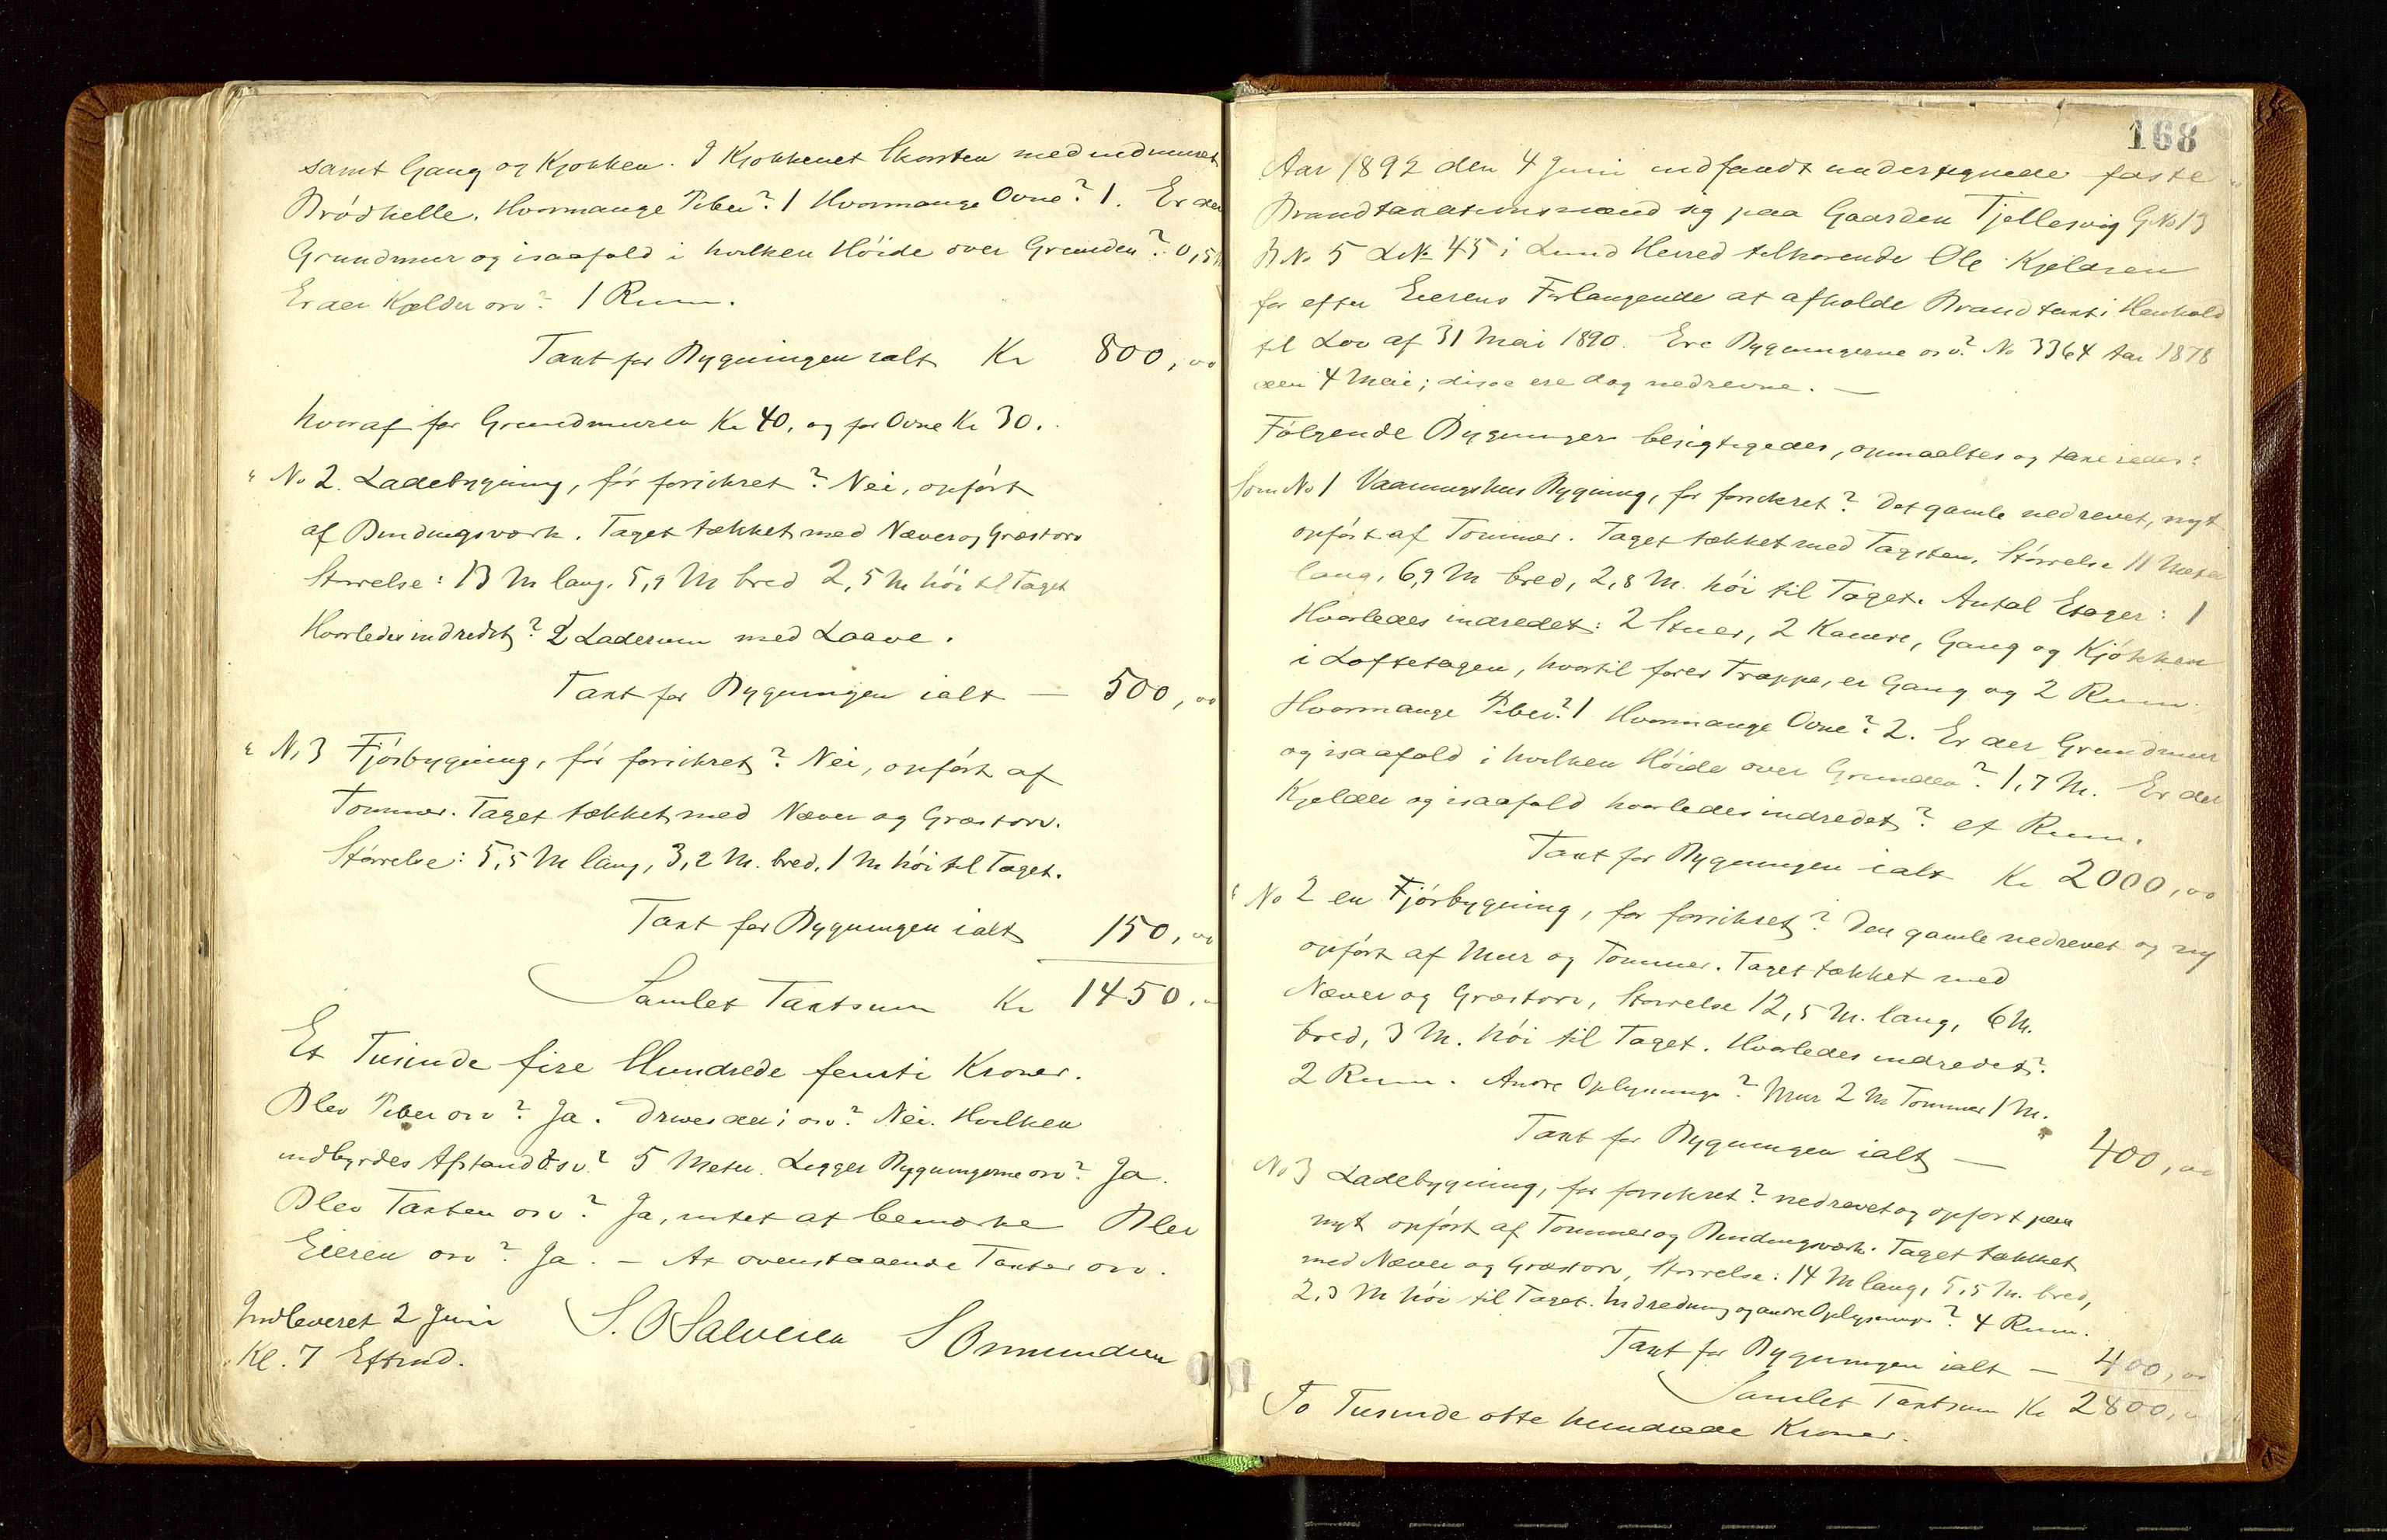 samt Gang og Kjøkken. I Kjøkkenet Skorsten med indmuret
Brödhelle. Hvormange Piber? 1 Hvormange Ovne? 1. Er der
Grundmur og isaafald i hvilken Höide over Grunden? 0,5 M
Er der Kjelder osv? 1 Rum.
Taxt for Bygningen ialt Kr 800,00
hvoraf for Grundmuren Kr 40, og for Ovne Kr 30.
" No 2. Ladebygning, før forsikret? Nei, opfört
af Bindingsværk. Taget tækket med Næver og Græstorv
Størrelse: 13 M lang, 5,9 M bred 2,5 M höi til Taget
Hvorledes indredet? 2 Laderum med Laave.
Taxt for Bygningen ialt — 500,00
" No 3 Fjösbygning, för forsikret? Nei, opfört af
Tømmer. Taget tækket med Næver og Græstorv.
Størrelse: 5,5 M lang, 3,2 M. bred, 1 M höi til Taget.
Taxt for Bygningen ialt 150,00
Samlet Taxtsum Kr 1450.
Et Tusinde fire Hundrede femti Kroner.
Blev Piber osv? Ja. Drives der i osv? Nei. Hvilken
indbyrdes Afstand osv? 5 Meter. Ligger Bygningerne osv? Ja.
Blev Taxten osv? Ja, intet at bemærke Blev
Eieren osv? Ja. — At ovenstaaende Taxter osv.
Indleveret 2 Juni S. O Salvesen S Omundsen
Kl. 7 Eftmd.
168
Aar 1892 den 4 Juni indfandt undertegnede faste
Brandtaxationsmænd sig paa Gaarden Tjellesvig GNo 13
BNo 5 LNo 45 i Lund Herred tilhørende Ole Kjeldsen
for efter Eierens Forlangende at afholde Brandtaxt i Henhold
til Lov af 31 Mai 1890. Ere Bygningerne osv? No 3364 Aar 1878
den 4 Mai; disse ere dog nedrevne. —
Følgende Bygninger besigtigedes, opmaaltes og taxeredes:
Som No 1 Vaaningshus Bygning, før forsikret? Det gamle nedrevet, nyt
opført af Tømmer. Taget tækket med Tagsten, Størrelse 11 Meter
lang, 6,9 M bred, 2,8 M. høi til Taget. Antal Etager: 1
Hvorledes indredet: 2 Stuer, 2 Kamre, Gang og Kjökken
i Loftetagen, hvortil fører Trappe, er Gang og 2 Rum.
Hvormange Piber? 1 Hvormange Ovne? 2. Er der Grundmur
og isaafald i hvilken Höide over Grunden? 1,7 M. Er der
Kjelder og isaafald hvorledes indredet? et Rum.
Taxt for Bygningen ialt Kr 2000,00
" No 2 en Fjösbygning, før forsikret? Den gamle nedrevet og ny
opført af Mur og Tømmer. Taget tækket med
Næver og Græstorv, Størrelse 12,5 M. lang, 6 M.
bred, 3 M. höi til Taget. Hvorledes indredet?
2 Rum. Andre Oplysninger? Mur 2 M Tømmer 1 M.
Taxt for Bygningen ialt — 400,00
No 3 Ladebygning, før forsikret? nedrevet og opført paa
nyt opfört af Tømmer og Bindingsværk. Taget tækket
med Næver og Græstorv, Størrelse: 14 M lang, 5,5 M. bred,
2,3 M höi til Taget. Indredning og andre Oplysninger? 4 Rum.
Taxt for Bygningen ialt — 400,00
Samlet Taxtsum Kr 2800,
To Tusinde otte hundrede Kroner.